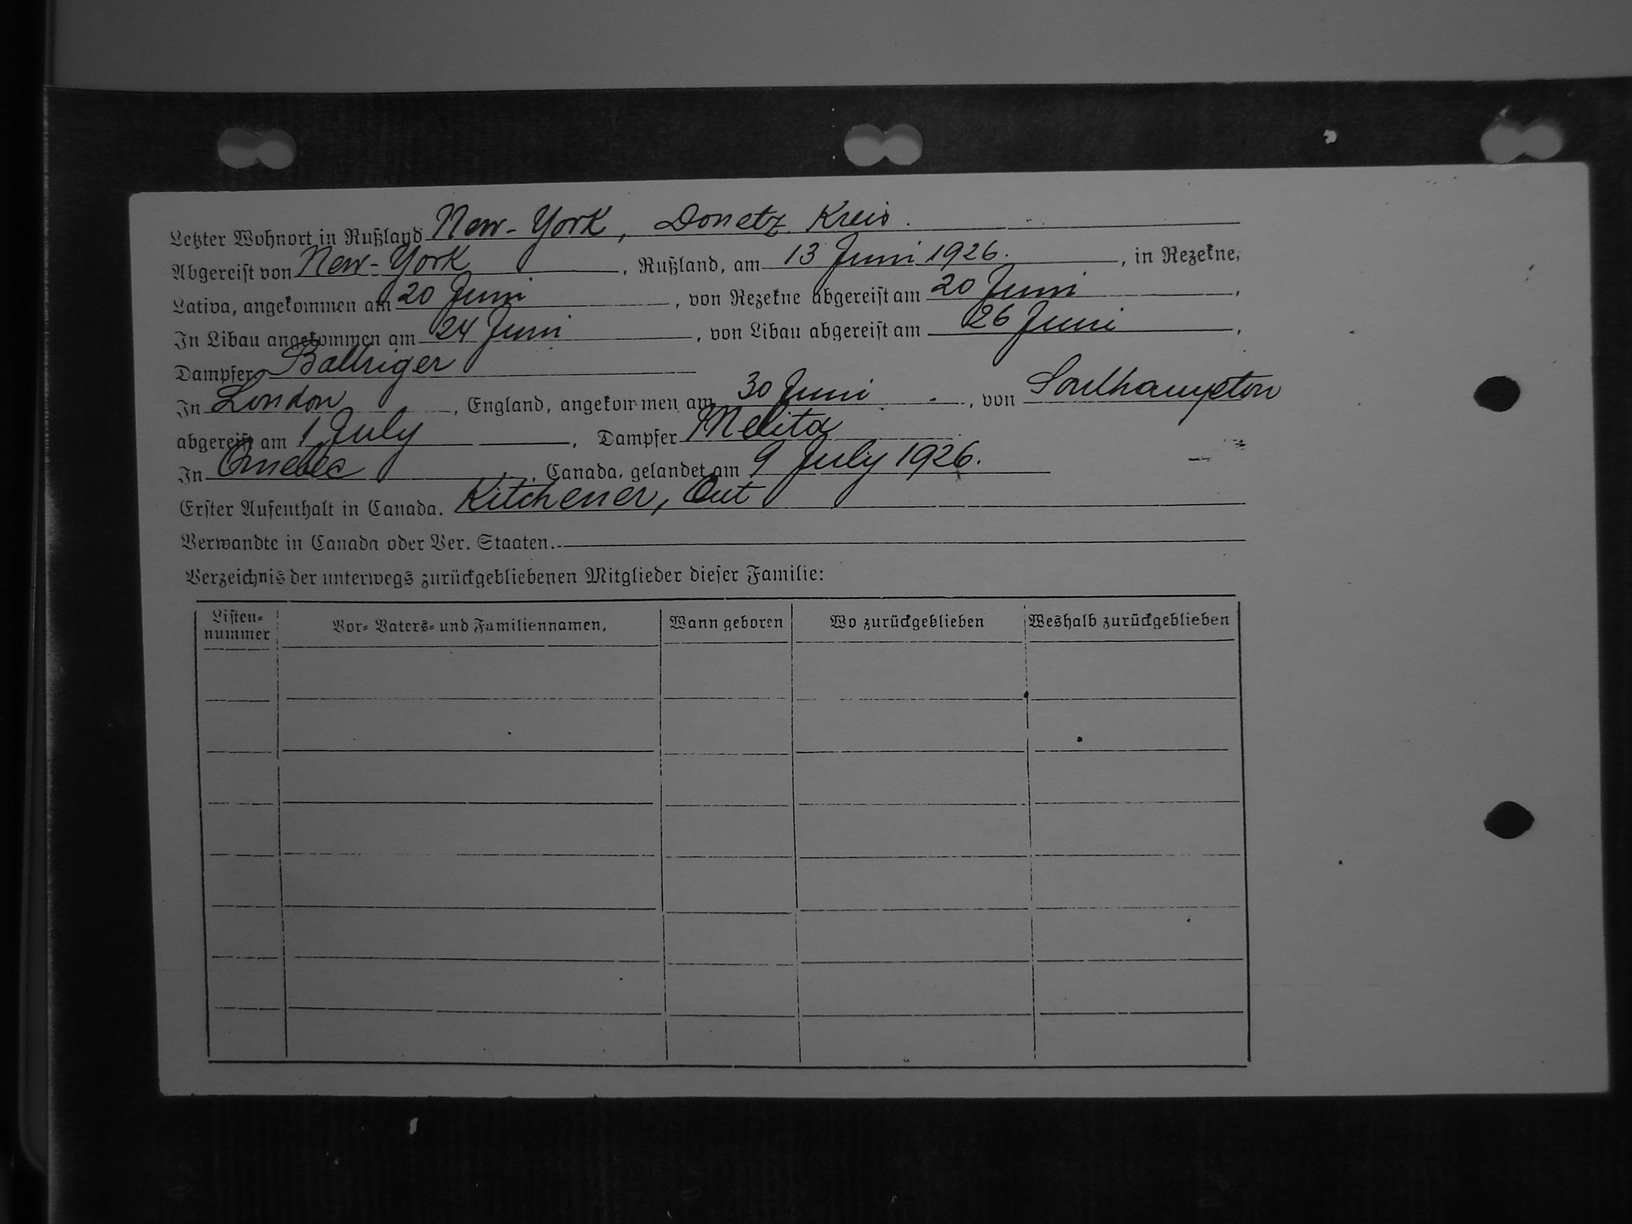 Letzter Wohnort in Rußland New-York, Donetz Kreis.
Abgereist von New-York, Rußland, am 13 Juni 1926., in Rezekne,
Lativa, angekommen am 20 Juni, von Rezekne abgereist am 20 Juni,
In Libau angekommen am 24 Juni, von Libau abgereist am 26 Juni,
Dampfer Baltriger
In London, England, angekommen am 30 Juni, von Southampton
abgereist am 1 July, Dampfer Melita
In Quebec, Canada, gelandet am 9 July 1926.
Erster Aufenthalt in Canada. Kitchener, Ont
Verwandte in Canada oder Ver. Staaten.
Verzeichnis der unterwegs zurückgebliebenen Mitglieder dieser Familie:
Listen-nummer Vor- Vaters- und Familiennamen, Wann geboren Wo zurückgeblieben Weshalb zurückgeblieben